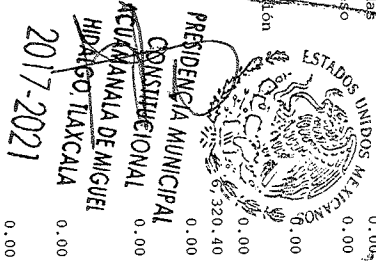 as
so
ión
ESTADOS UNIDOS MEXICANOS
PRESIDENCIA MUNICIPAL
CONSTITUCIONAL
ACUAMANALA DE MIGUEL
HIDALGO TLAXCALA
2017-2021
0.00
0.00
0.00
6,320.40
0.00
0.00
0.00
0.00